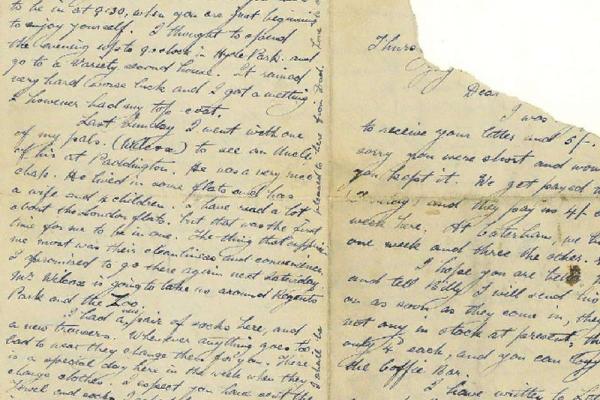 to be in at 9.30, when you are just beginning
to enjoy yourself. I thought to spend
the evening up to 9 o'clock in Hyde Park. and
go to a Variety second house. It rained
very hard worse luck and I got a wetting
I however had my top coat.
Last Sunday I went with one
of my pals. (Welova) to see an Uncle
of his at Paddington. He was a very nice
chap. He lived in some flats and has
a wife and children. I have read a lot
about the London flats, but that was the first
time for me to be in one. The thing that
me most was their cleanliness and convenience
I promised to go there again next Saturday.
Mr Welova is going to take us around Regents
Park and the Zoo.
I had a new pair of socks here, and
a new trousers. Whenever anything goes too
bad to wear they change them for you. There
is a special day here in the week when they
change clothes. I expect you have sent the
towel and socks.
Thurs
Dear
I was
to receive your letter and 5/-.
sorry you were short and
you kept it. We get paid
and they pay us 4/-
week here. At Caterham, we
one week and three the other.
I hope you are
and tell Billy I will send his
on as soon as they come in, they
not any in stock at present, th
only each, and you can
the Coffee Bar.
I have written to